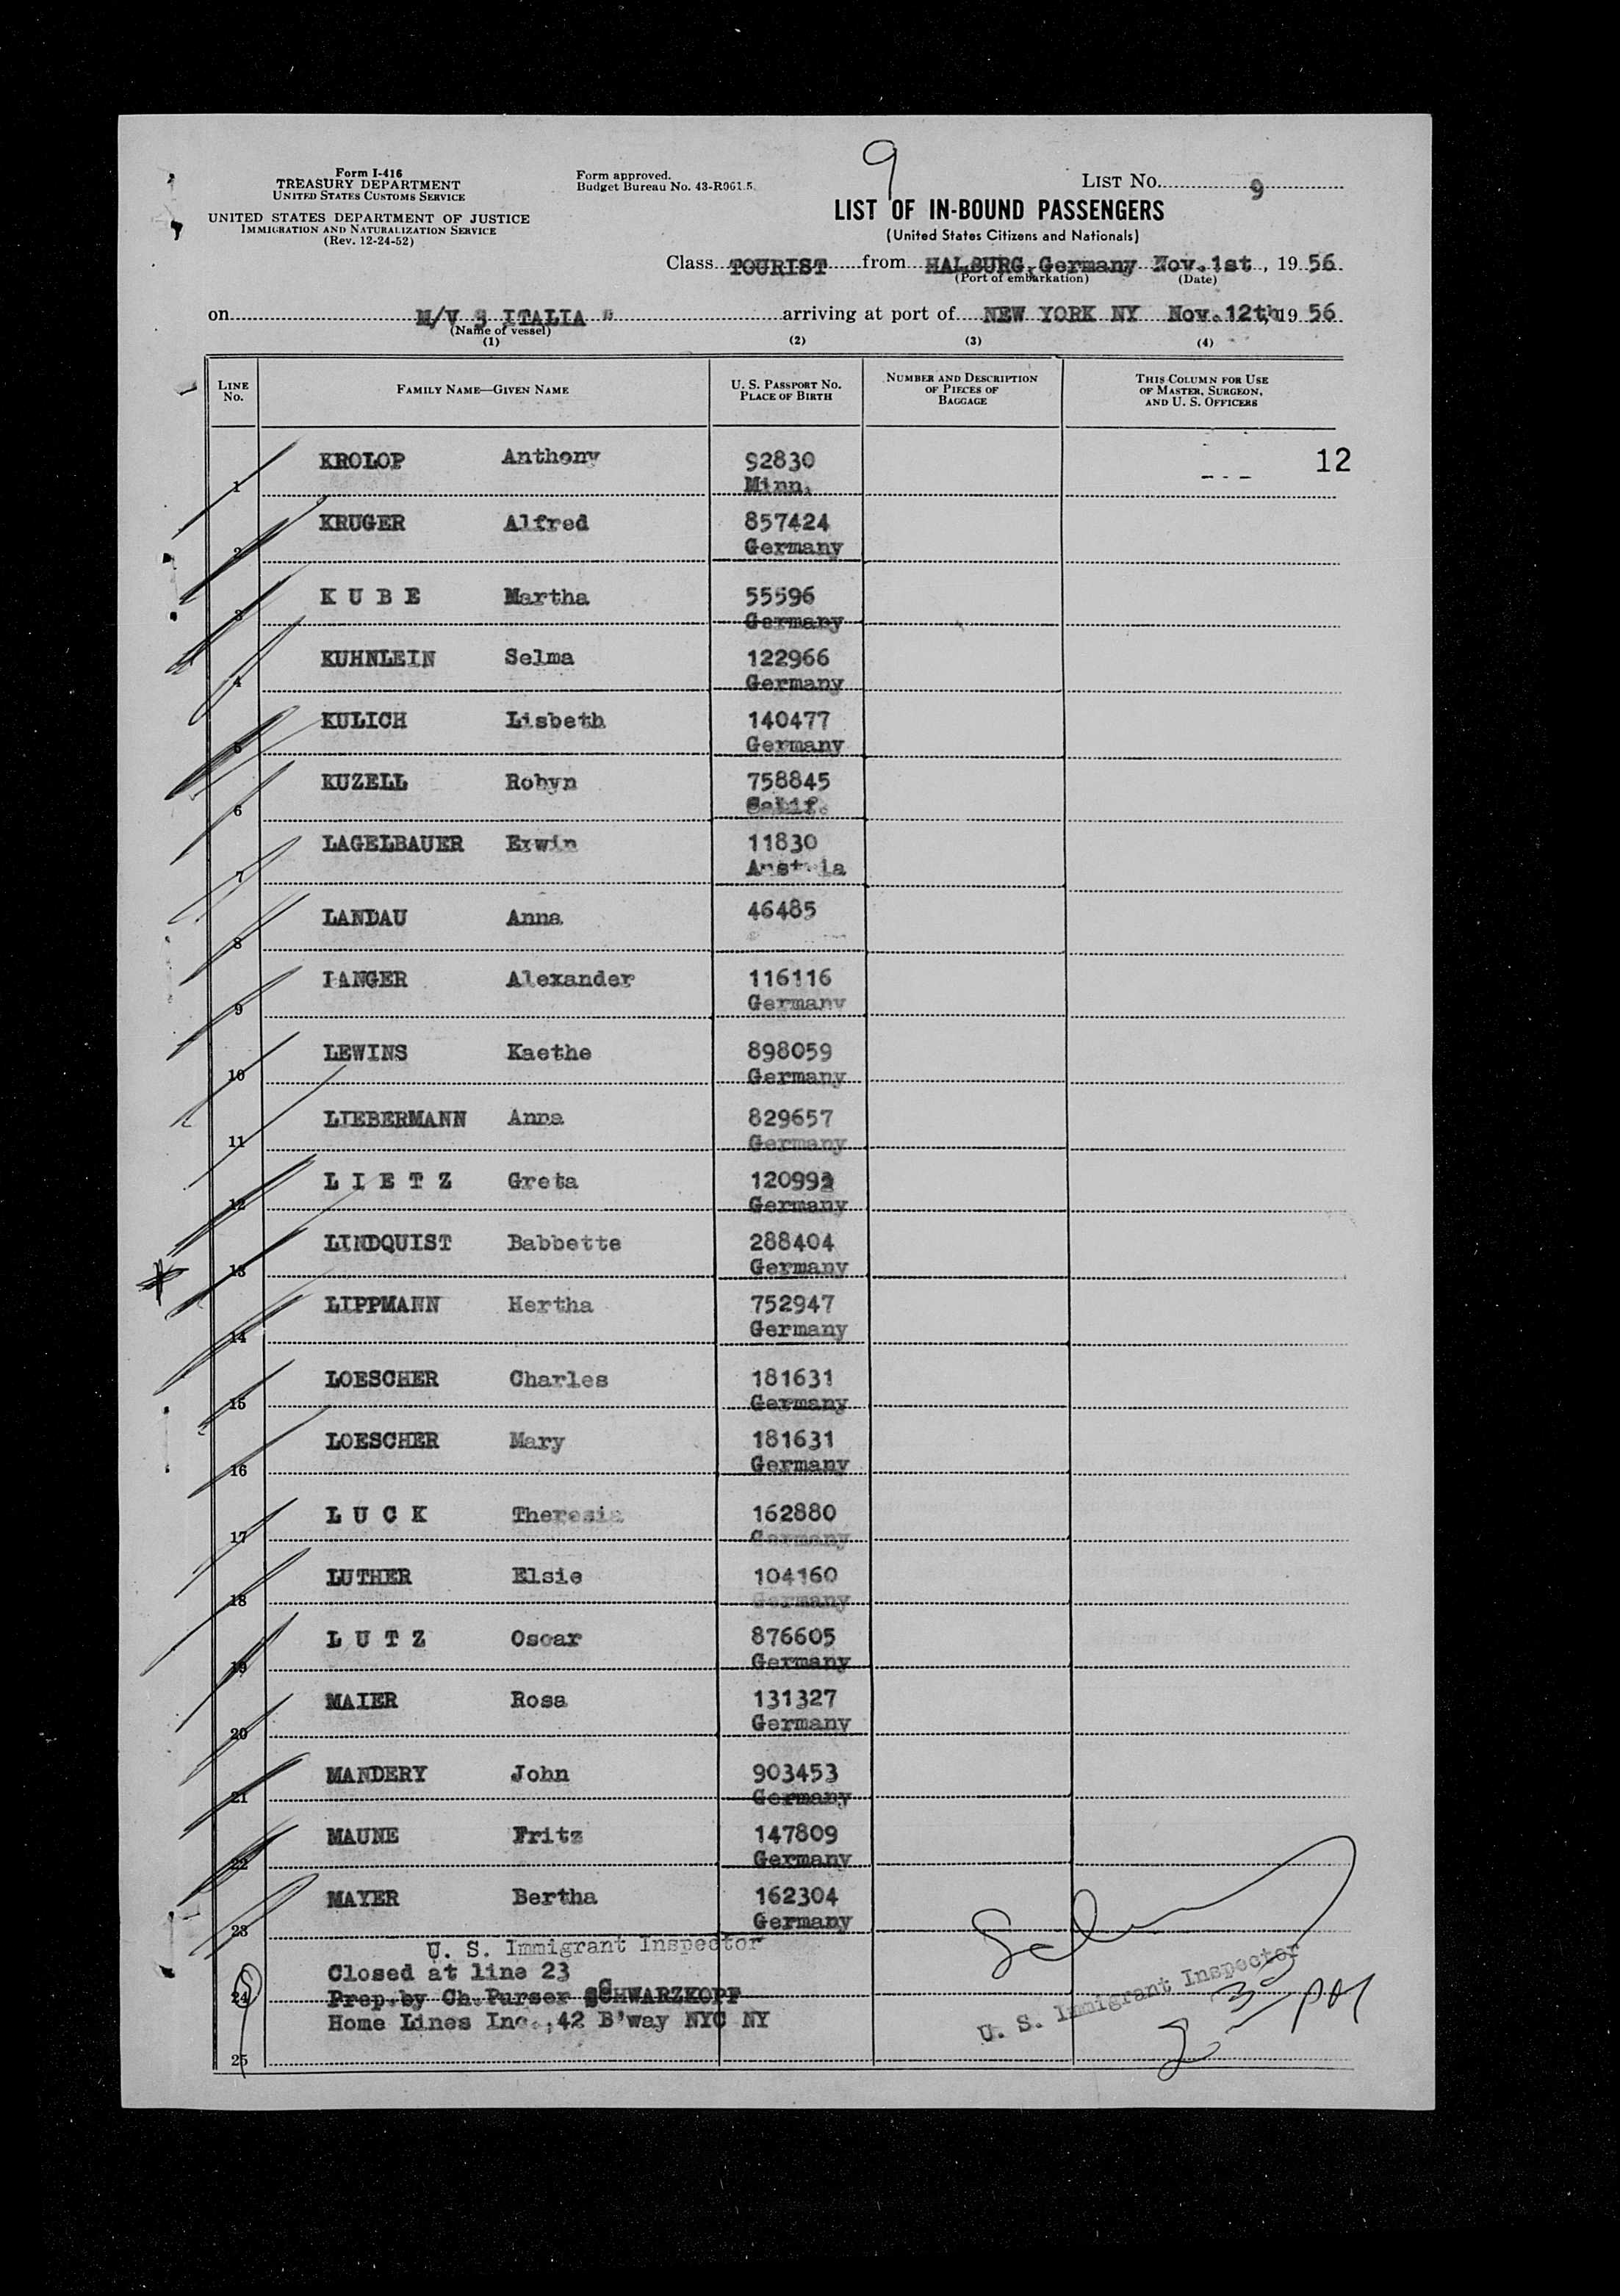 9
Form I-416
TREASURY DEPARTMENT
UNITED STATES CUSTOMS SERVICE
UNITED STATES DEPARTMENT OF JUSTICE
IMMIGRATION AND NATURALIZATION SERVICE
(Rev. 12-24-52)
Form approved.
Budget Bureau No. 43-R061.5.
LIST NO. 9
LIST OF IN-BOUND PASSENGERS
(United States Citizens and Nationals)
Class TOURIST from HALBURG, Germany Nov. 1st, 19 56
(Port of embarkation) (Date)
on M/V S ITALIA " arriving at port of NEW YORK NY Nov. 12th, 19 56
(Name of vessel)
(1) (2) (3) (4)
LINE NO. FAMILY NAME—GIVEN NAME U. S. PASSPORT NO. PLACE OF BIRTH NUMBER AND DESCRIPTION OF PIECES OF BAGGAGE THIS COLUMN FOR USE OF MASTER, SURGEON, AND U. S. OFFICERS
1 KROLOP Anthony 92830 12
Minn.
2 KRUGER Alfred 857424
Germany
3 K U B E Martha 55596
Germany
4 KUHNLEIN Selma 122966
Germany
5 KULICH Lisbeth 140477
Germany
6 KUZELL Robyn 758845
Calif.
7 LAGELBAUER Erwin 11830
Austria
8 LANDAU Anna 46485
9 LANGER Alexander 116116
Germany
10 LEWINS Kaethe 898059
Germany
11 LIEBERMANN Anna 829657
Germany
12 L I E T Z Greta 120992
Germany
13 LINDQUIST Babbette 288404
Germany
14 LIPPMANN Hertha 752947
Germany
15 LOESCHER Charles 181631
Germany
16 LOESCHER Mary 181631
Germany
17 L U C K Theresia 162880
Germany
18 LUTHER Elsie 104160
Germany
19 L U T Z Oscar 876605
Germany
20 MAIER Rosa 131327
Germany
21 MANDERY John 903453
Germany
22 MAUNE Fritz 147809
Germany
23 MAYER Bertha 162304
Germany
U. S. Immigrant Inspector
Closed at line 23
24 Prep. by Ch. Purser SCHWARZKOPF
Home Lines Inc., 42 B'way NYC NY
25
U. S. Immigrant Inspector